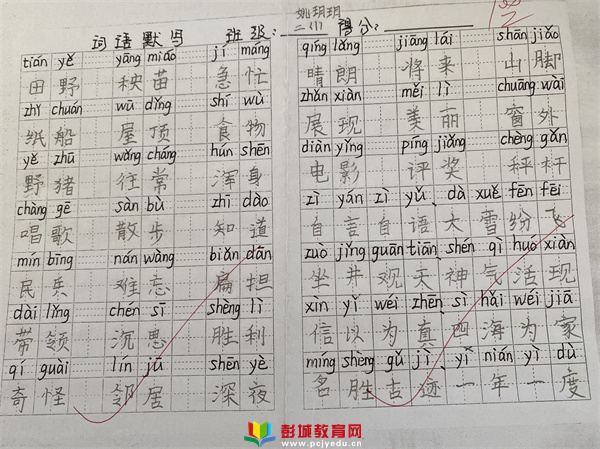 词语默写 班级:
tián yě yāng miáo jí máng
田野 秧苗 急忙
zhǐ chuán wū dǐng shí wù
纸船 屋顶 食物
yě zhū wǎng cháng hún shēn
野猪 往常 浑身
chàng gē sàn bù zhī dào
唱歌 散步 知道
mín bīng nán wàng biǎn dān
民兵 难忘 扁担
dài lǐng chén sī shèng lì
带领 沉思 胜利
qí guài lín jū shēn yè
奇怪 邻居 深夜
姚玥玥
二(1) 得分:
qíng lǎng jiāng lái shān jiǎo
晴朗 将来 山脚
zhǎn xiàn měi lì chuāng wài
展现 美丽 窗外
diàn yǐng píng jiǎng chèng gǎn
电影 评奖 秤杆
zì yán zì yǔ dà xuě fēn fēi
自言自语 大雪纷飞
zuò jǐng guān tiān shén qì huó xiàn
坐井观天 神气活现
xìn yǐ wéi zhēn sì hǎi wéi jiā
信以为真 四海为家
míng shèng gǔ jì yì nián yí dù
名胜古迹 一年一度
彭城教育网
www.pcjyedu.cn